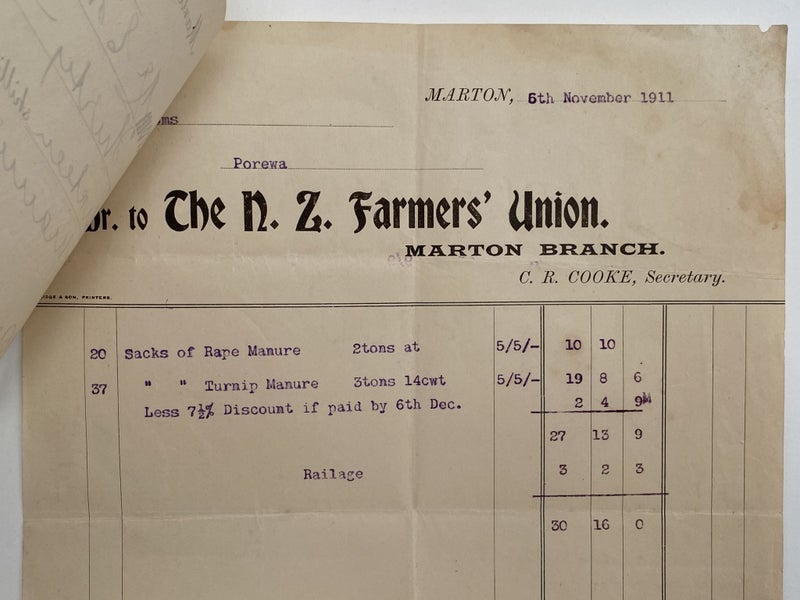 MARTON, 5th November 1911
ms
Porewa
Dr. to The N. Z. Farmers' Union.
MARTON BRANCH.
C. R. COOKE, Secretary.
& SON, PRINTERS.
20 Sacks of Rape Manure 2tons at 5/5/- 10 10
37 " " Turnip Manure 3tons 14cwt 5/5/- 19 8 6
Less 7½% Discount if paid by 6th Dec. 2 4 9
27 13 9
Railage 3 2 3
30 16 0